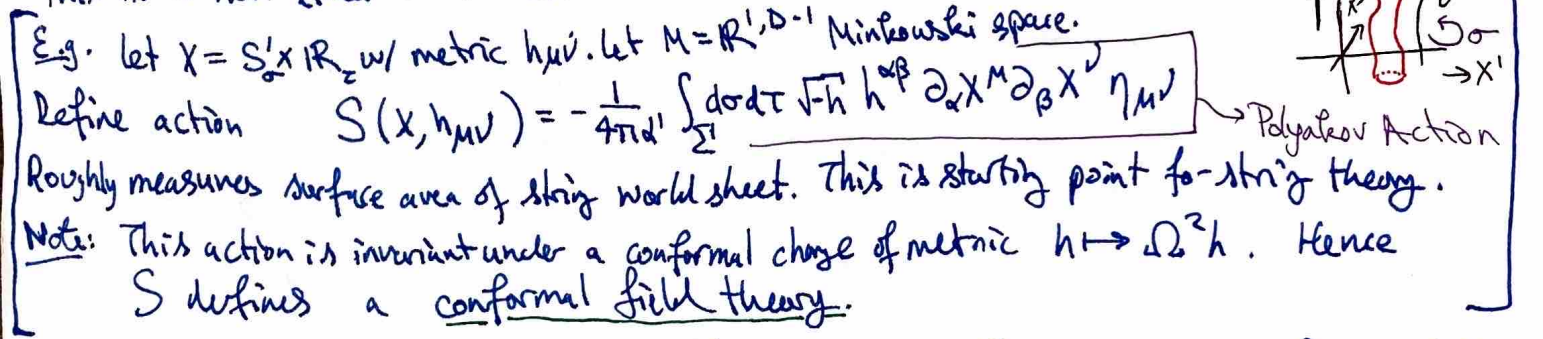 E.g. let X = S¹_σ × ℝ_τ w/ metric h_μν. let M = ℝ^{1,D-1} Minkowski space.
Define action S(X, h_μν) = -1/4πα' ∫_Σ dσdτ √-h h^{αβ} ∂_α X^μ ∂_β X^ν η_μν → Polyakov Action
Roughly measures surface area of string world sheet. This is starting point for string theory.
Note: This action is invariant under a conformal change of metric h ↦ Ω²h. Hence
S defines a conformal field theory.
σ
→X¹